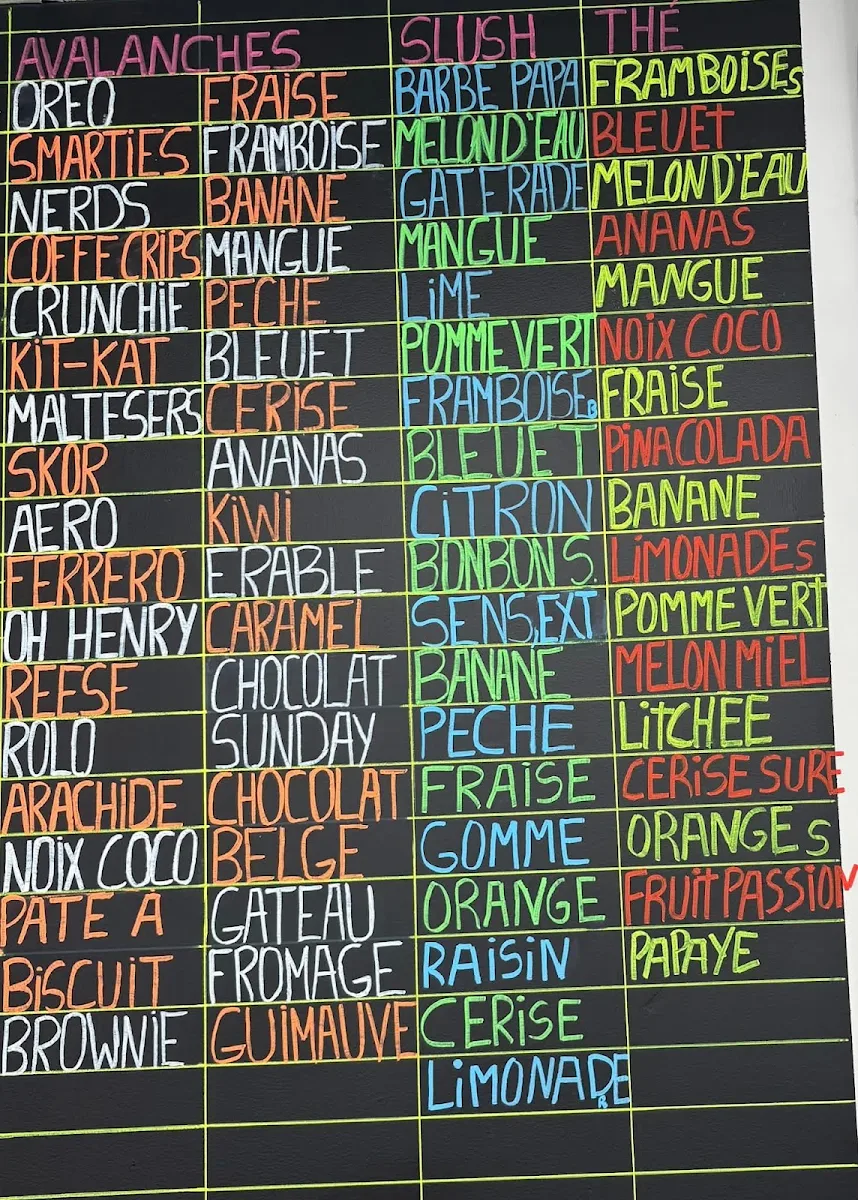 AVALANCHES
OREO
SMARTIES
NERDS
COFFE CRIPS
CRUNCHIE
KIT-KAT
MALTESERS
SKOR
AERO
FERRERO
OH HENRY
REESE
ROLO
ARACHIDE
NOIX COCO
PATE A
BISCUIT
BROWNIE
FRAISE
FRAMBOISE
BANANE
MANGUE
PECHE
BLEUET
CERISE
ANANAS
KIWI
ERABLE
CARAMEL
CHOCOLAT
SUNDAY
CHOCOLAT
BELGE
GATEAU
FROMAGE
GUIMAUVE
SLUSH
BARBE PAPA
MELON D'EAU
GATERADE
MANGUE
LIME
POMME VERT
FRAMBOISE B
BLEUET
CITRON
BONBON S.
SENS,EXT
BANANE
PECHE
FRAISE
GOMME
ORANGE
RAISIN
CERISE
LIMONADE R
THÉ
FRAMBOISES
BLEUET
MELON D'EAU
ANANAS
MANGUE
NOIX COCO
FRAISE
PINACOLADA
BANANE
LIMONADES
POMME VERT
MELON MIEL
LITCHEE
CERISE SURE
ORANGES
FRUIT PASSION
PAPAYE